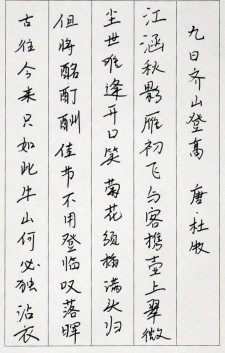 九日齐山登高 唐·杜牧
江涵秋影雁初飞与客携壶上翠微
尘世难逢开口笑菊花须插满头归
但将酩酊酬佳节不用登临叹落晖
古往今来只如此牛山何必独沾衣